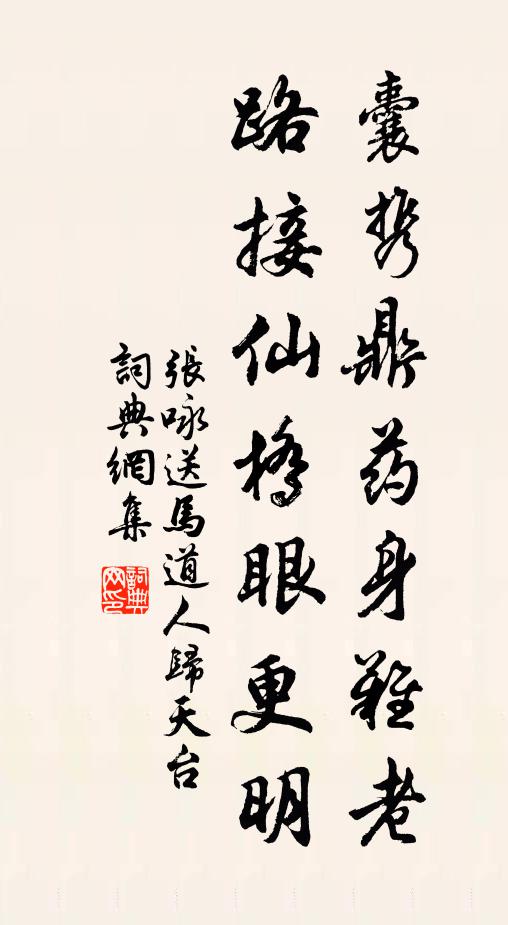 囊携鼎药身難老
路接仙橋眼更明
張咏送馬道人歸天台
詞典網集
詞典网印